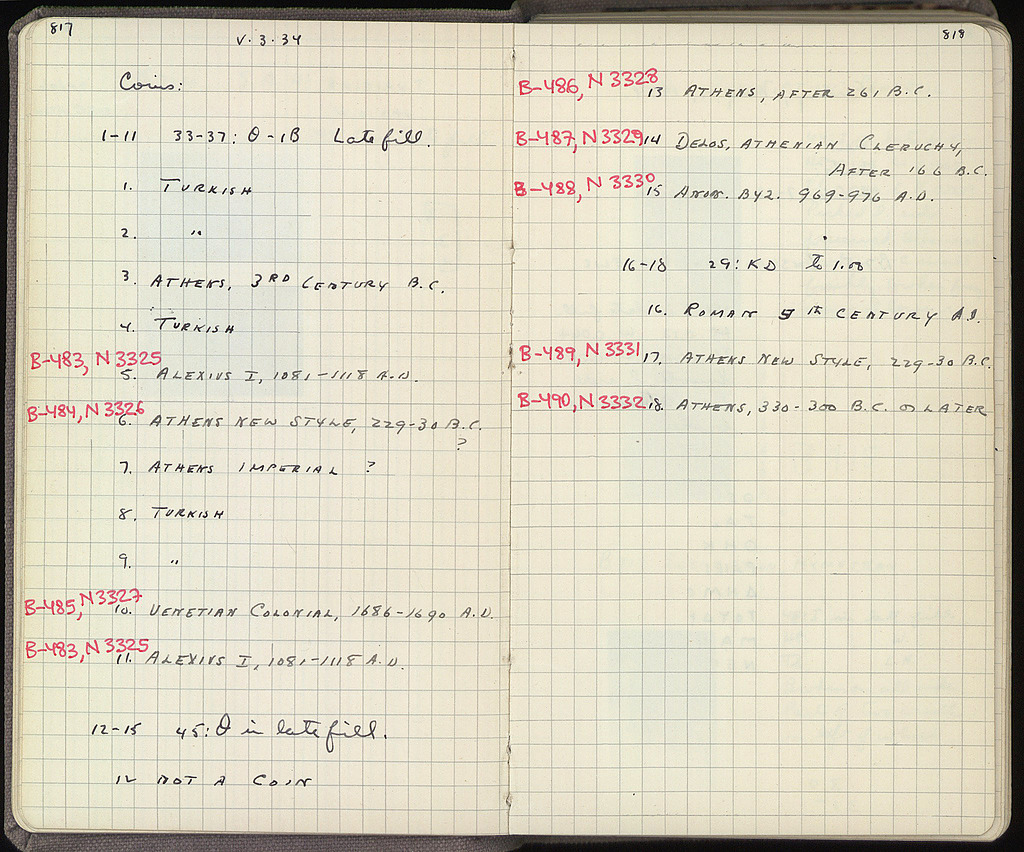 817
V·3·34
Coins:
1-11 33-37: Θ-ΙΒ Late fill.
1. TURKISH
2. "
3. ATHENS, 3RD CENTURY B.C.
4. TURKISH
B-483, N 3325
5. ALEXIUS I, 1081-1118 A.D.
B-484, N 3326
6. ATHENS NEW STYLE, 229-30 B.C.
?
7. ATHENS IMPERIAL ?
8. TURKISH
9. "
B-485, N 3327
10. VENETIAN COLONIAL, 1686-1690 A.D.
B-483, N 3325
11. ALEXIUS I, 1081-1118 A.D.
12-15 45: Θ in late fill.
12 NOT A COIN
818
B-486, N 3328
13 ATHENS, AFTER 261 B.C.
B-487, N 3329 14 DELOS, ATHENIAN CLERUCHY,
AFTER 166 B.C.
B-488, N 3330
15 ANON. BYZ. 969-976 A.D.
16-18 29: ΚΔ to 1.00
16. ROMAN 5TH CENTURY A.D.
B-489, N 3331 17. ATHENS NEW STYLE, 229-30 B.C.
B-490, N 3332 18. ATHENS, 330-300 B.C. OR LATER